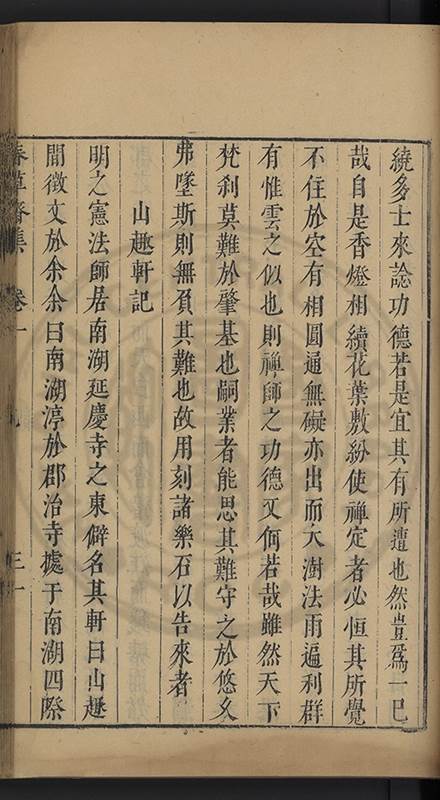 繞多士來諗功德若是宜其有所遭也然豈爲一已
哉自是香燈相續花葉敷紛使禪定者必恒其所覺
不住於空有相圓通無礙亦出而大澍法雨遍利群
有惟雲之似也則禪師之功德又何若哉雖然天下
梵刹莫難於肇基也嗣業者能思其難守之於悠久
弗墜斯則無負其難也故用刻諸樂石以告來者
山趣軒記
明之憲法師居南湖延慶寺之東僻名其軒曰山趣
間徵文於余余曰南湖渟於郡治寺據于南湖四際
春草齋集 卷一